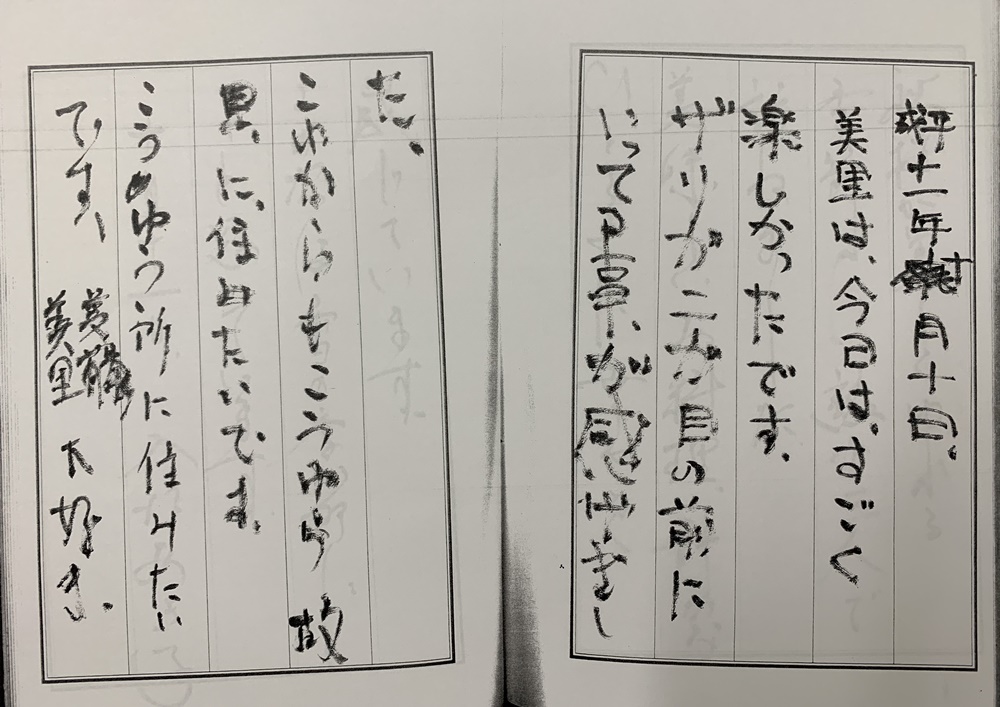 十一年十月十日、
美里は、今日は、すごく
楽しかったです、
ザリガニが目の前に
いて早亭、が感出来し
た、
これからもこうゆう故
見、に住みたいです、
こうゆう所に住みたい
です、
美里 大好き、